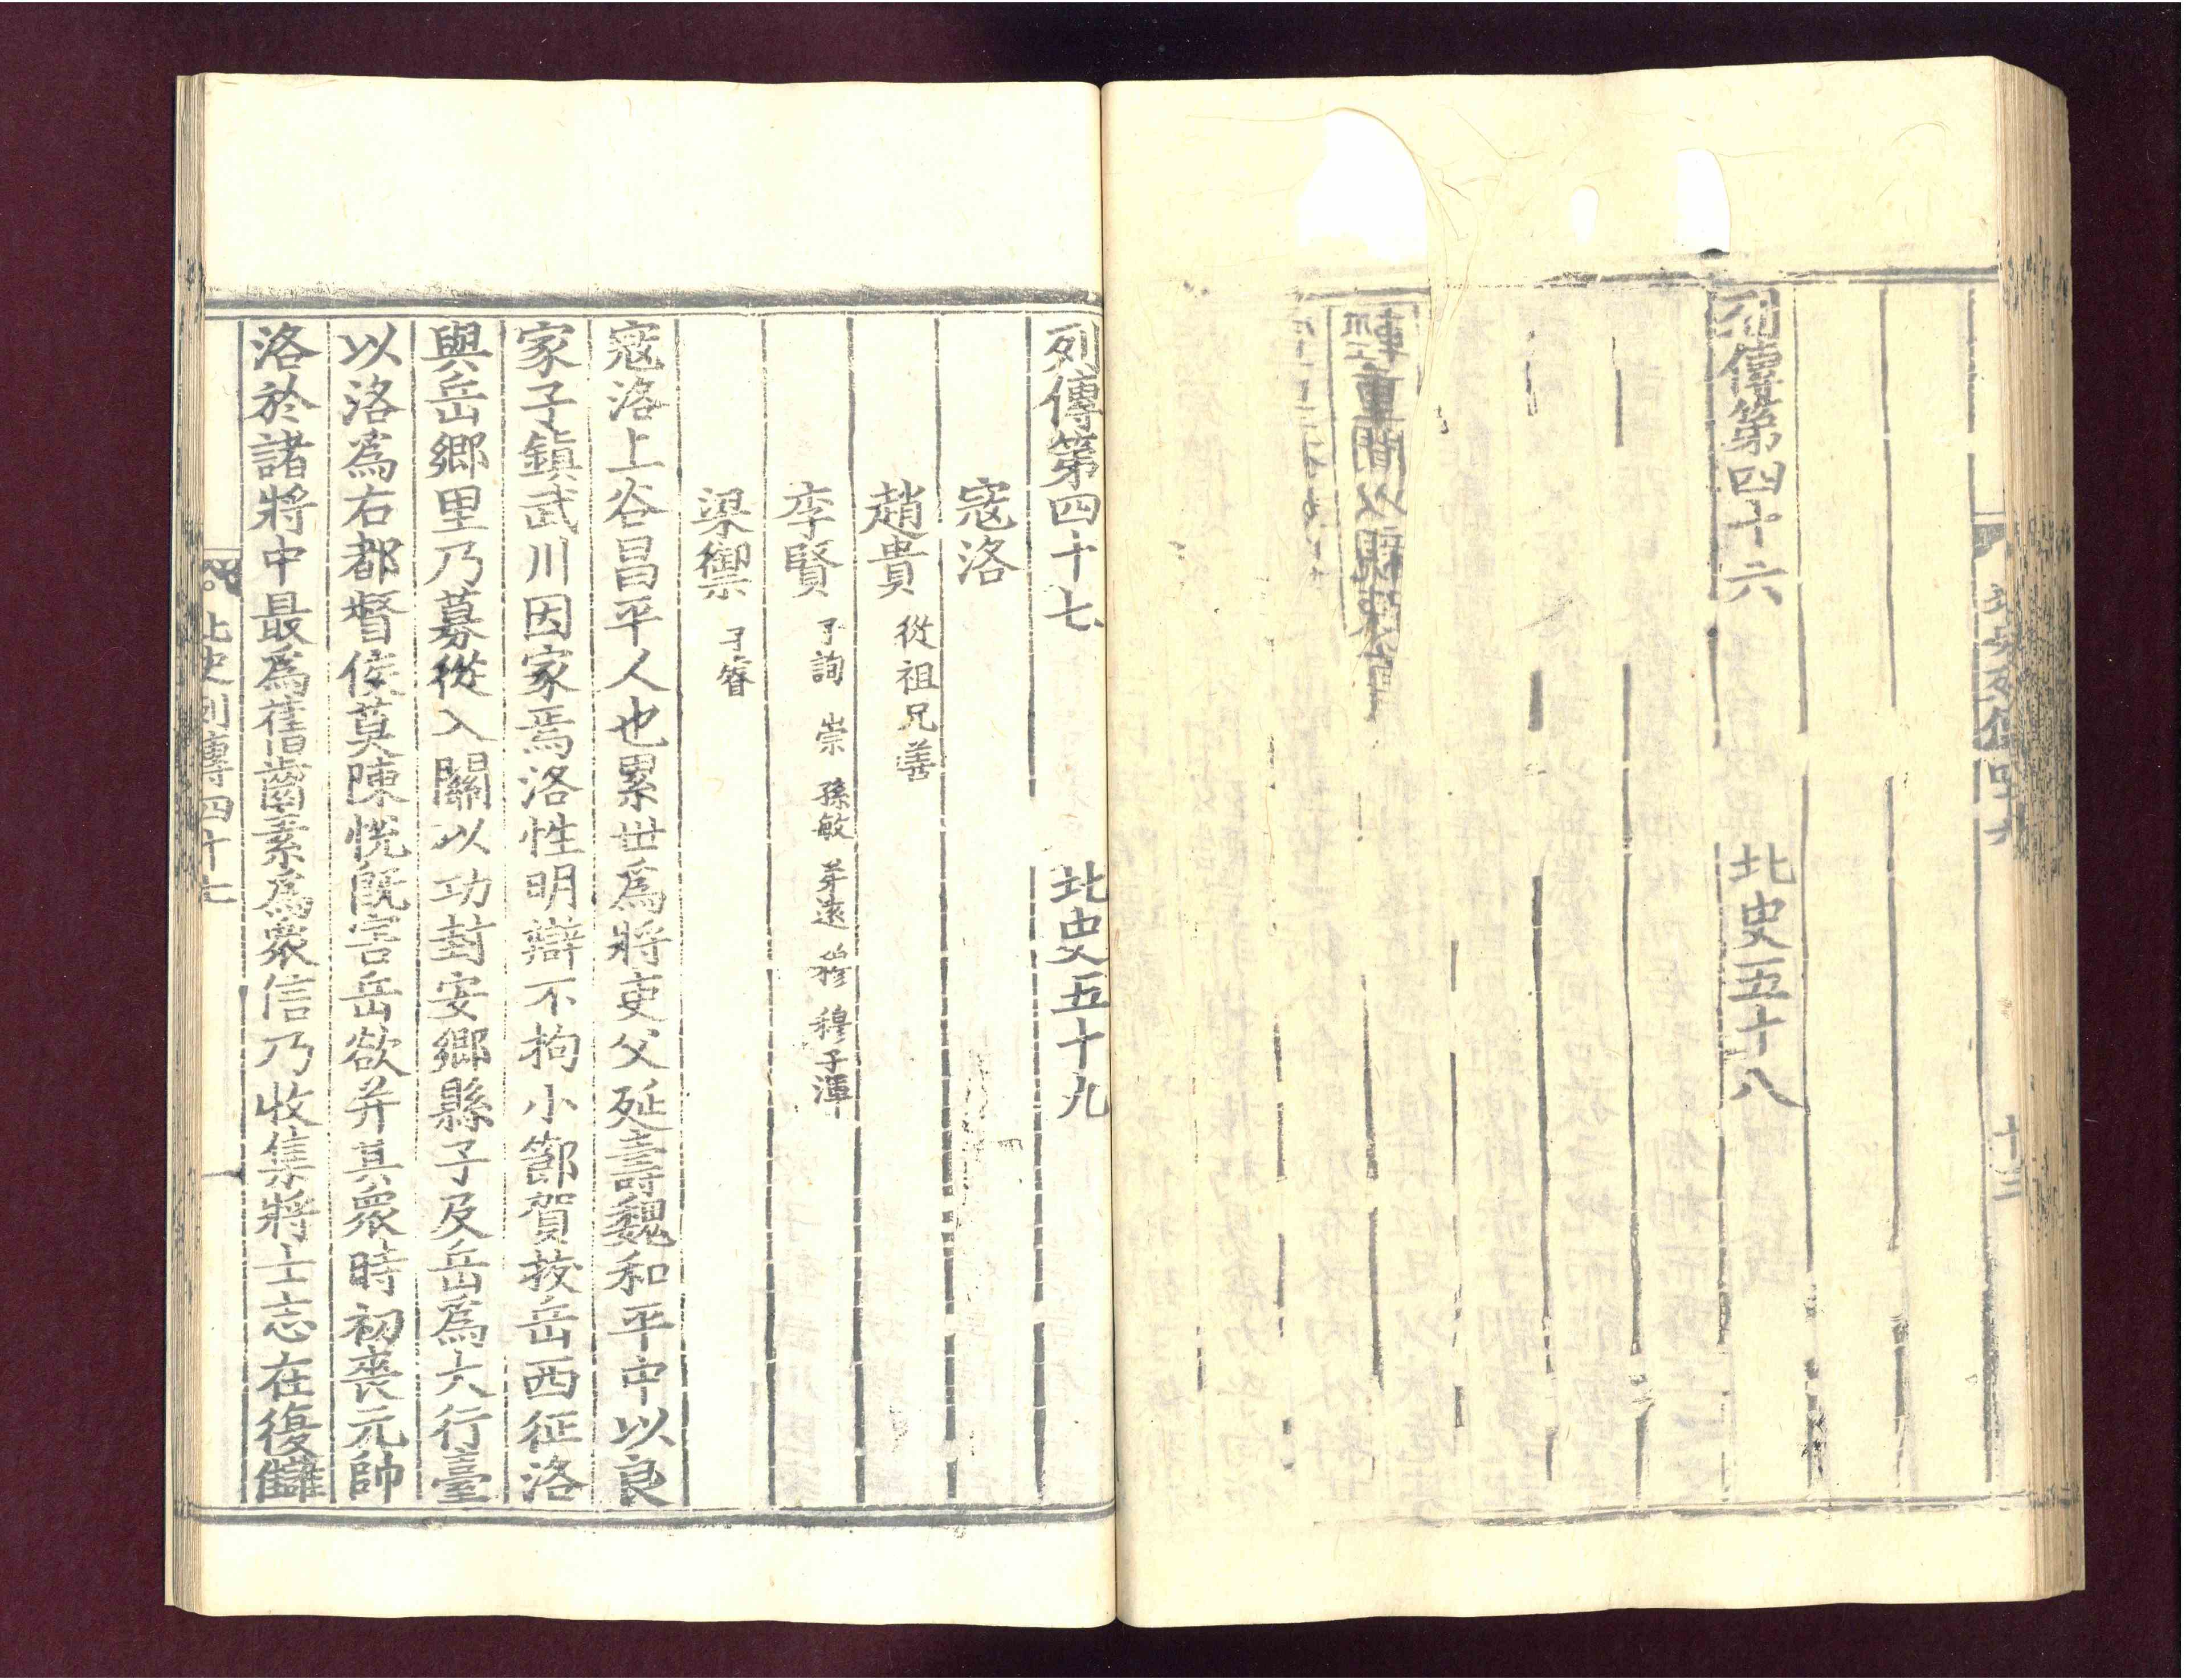 列傳第四十六　北史五十八
十三
列傳第四十七　北史五十九
寇洛
趙貴 從祖兄善
李賢 子詢 崇 孫敏 弟遠 穆 穆子渾
梁禦 子睿
寇洛上谷昌平人也累世爲將吏父延壽魏和平中以良
家子鎮武川因家焉洛性明辯不拘小節賀拔岳西征洛
與岳鄉里乃募從入關以功封安鄉縣子及岳爲大行臺
以洛爲右都督侯莫陳悅旣害岳欲并其衆時初喪元帥
洛於諸將中最爲舊齒素爲衆信乃收集將士志在復讎
北史列傳四十七
一